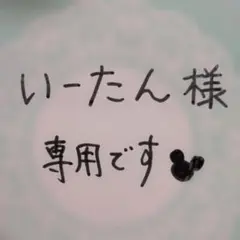 いーたん様
専用です